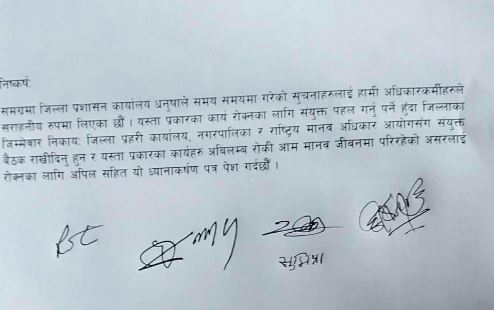 निष्कर्ष:
समग्रमा जिल्ला प्रशासन कार्यालय धनुषाले समय समयमा गरेको सुचनाहरुलाई हामी अधिकारकर्मीहरुले
सराहनीय रुपमा लिएका छौं । यस्ता प्रकारका कार्य रोक्नका लागि संयुक्त पहल गर्नु पर्ने हुँदा जिल्लाका
जिम्मेवार निकाय: जिल्ला प्रहरी कार्यालय, नगरपालिका र राष्ट्रिय मानव अधिकार आयोगसंग संयुक्त
बैठक राखीदिनु हुन र यस्ता प्रकारका कार्यहरु अबिलम्ब रोकी आम मानव जीवनमा परिरहेको असरलाई
रोक्नका लागि अपिल सहित यो ध्यानाकर्षण पत्र पेश गर्दछौं ।
सुमित्रा